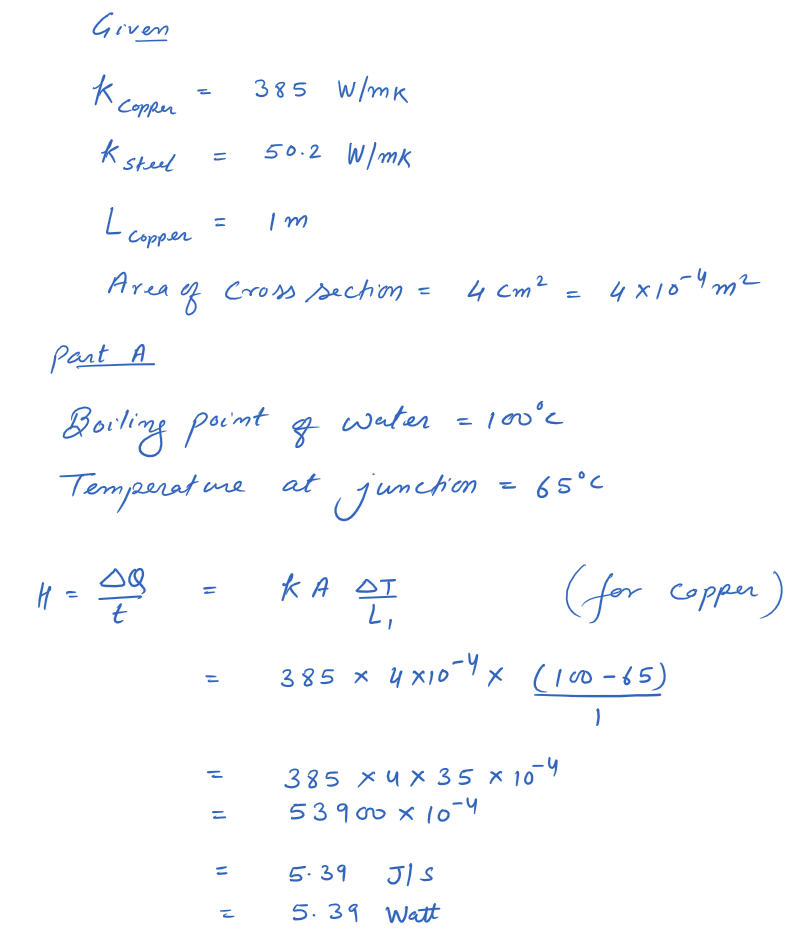 Given
K Copper = 385 W/mK
K Steel = 50.2 W/mK
L Copper = 1 m
Area of Cross section = 4 cm² = 4 × 10⁻⁴ m²
Part A
Boiling point of water = 100°C
Temperature at junction = 65°C
H = ΔQ/t = KA ΔT/L₁ (for copper)
= 385 × 4 × 10⁻⁴ × (100 - 65)/1
= 385 × 4 × 35 × 10⁻⁴
= 53900 × 10⁻⁴
= 5.39 J/s
= 5.39 Watt